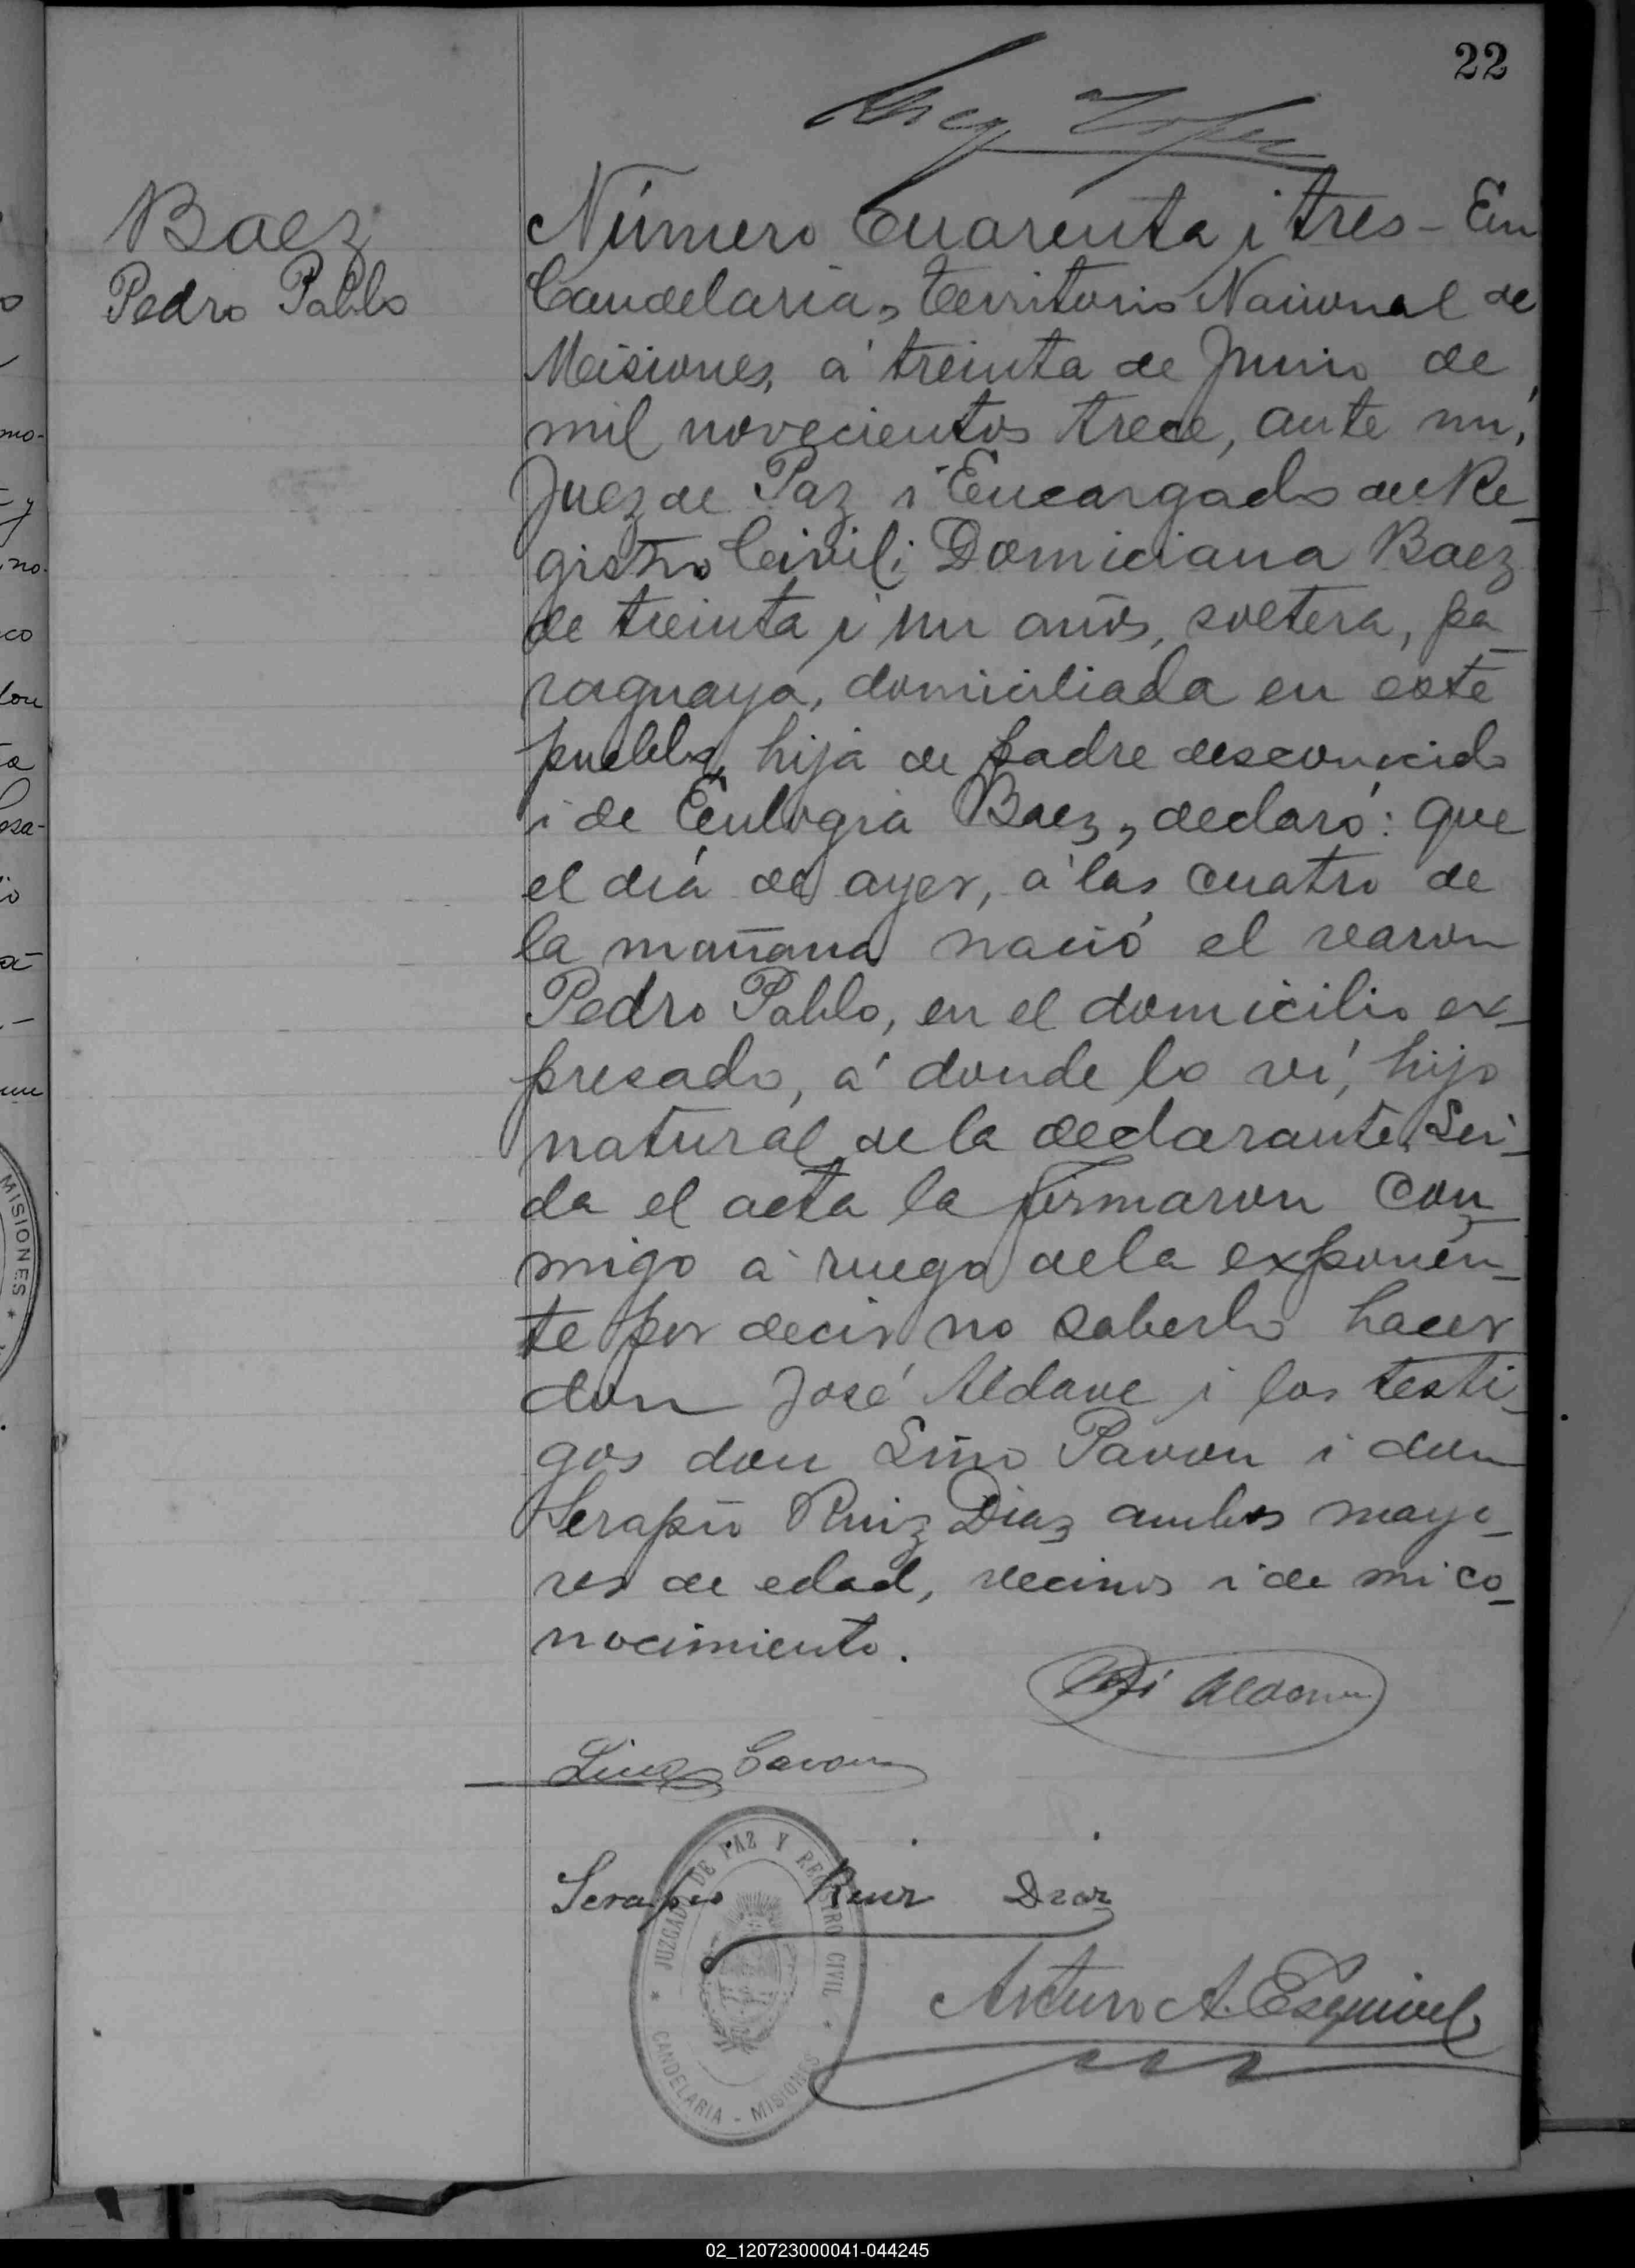 22
Baez
Pedro Pablo
Número Cuarenta i tres - En
Candelaria, Territorio Nacional de
Misiones, á treinta de Junio de
mil novecientos trece, ante mí,
Juez de Paz i Encargado del Re-
gistro Civil; Domiciana Baez
de treinta i un años, soltera, pa-
raguaya, domiciliada en este
pueblo, hija de padre desconocido
i de Eulogia Baez, declaró: que
el día de ayer, á las cuatro de
la mañana nació el varon
Pedro Pablo, en el domicilio ex-
presado, á donde lo ví, hijo
natural de la declarante. Lei-
da el acta la firmaron con-
migo á ruego de la exponen-
te por decir no saberlo hacer
don José Aldave i los testi-
gos don Lino Pavon i don
Serapio Ruiz Diaz ambos mayo-
res de edad, vecinos i de mi co-
nocimiento.
Lino Pavon
Serapio Ruiz Diaz
Arturo A. Esquivel
JUZGADO DE PAZ Y REGISTRO CIVIL
* CANDELARIA - MISIONES *
MISIONES *
02_120723000041-044245